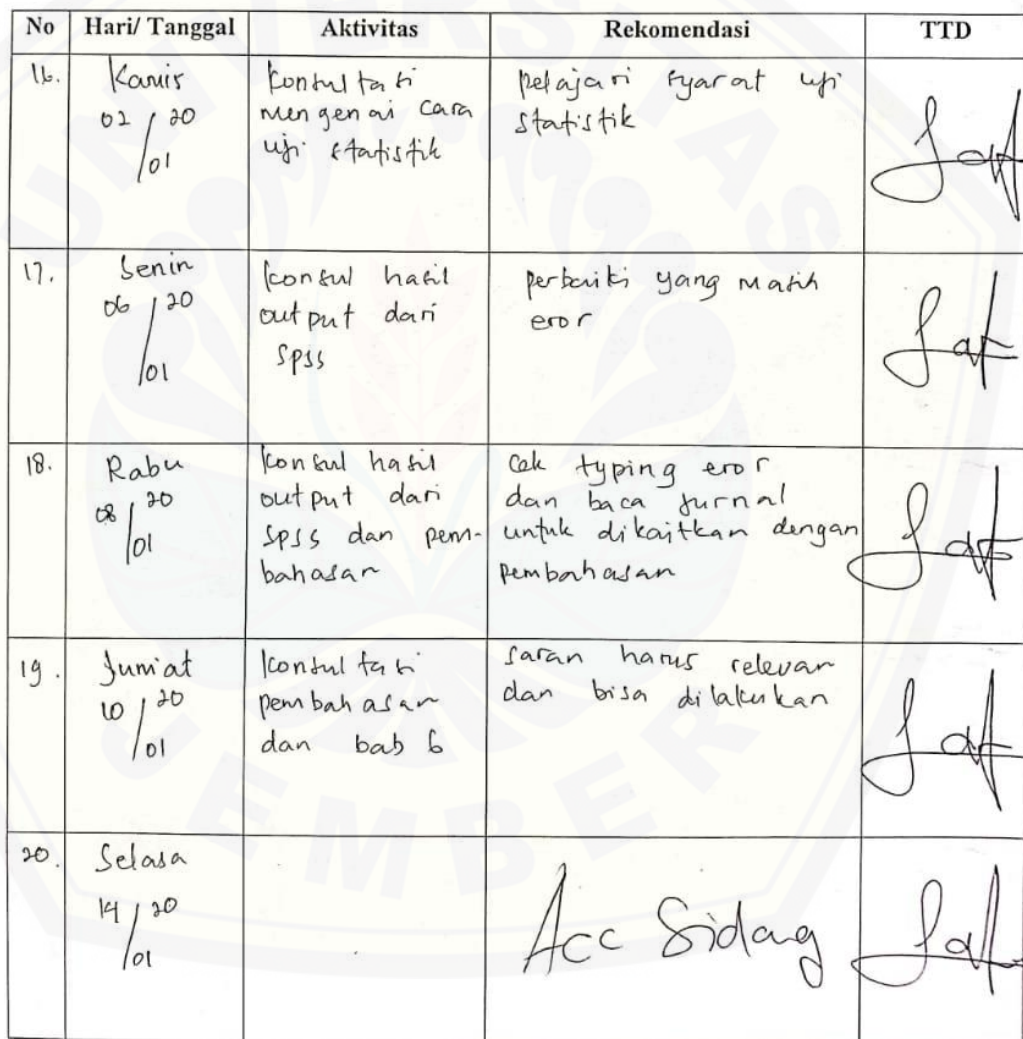 No Hari/ Tanggal Aktivitas Rekomendasi TTD
16. Kamis
02/01 20
konsultasi
mengenai cara
uji statistik
pelajari syarat uji
statistik
17. Senin
06/01 20
konsul hasil
output dari
spss
perbaiki yang masih
eror
18. Rabu
08/01 20
konsul hasil
output dari
spss dan pem-
bahasan
cek typing eror
dan baca jurnal
untuk dikaitkan dengan
pembahasan
19. Jum'at
10/01 20
konsultasi
pembahasan
dan bab 6
saran harus relevan
dan bisa dilakukan
20. Selasa
14/01 20
Acc Sidang
UNIVERSITAS
JEMBER